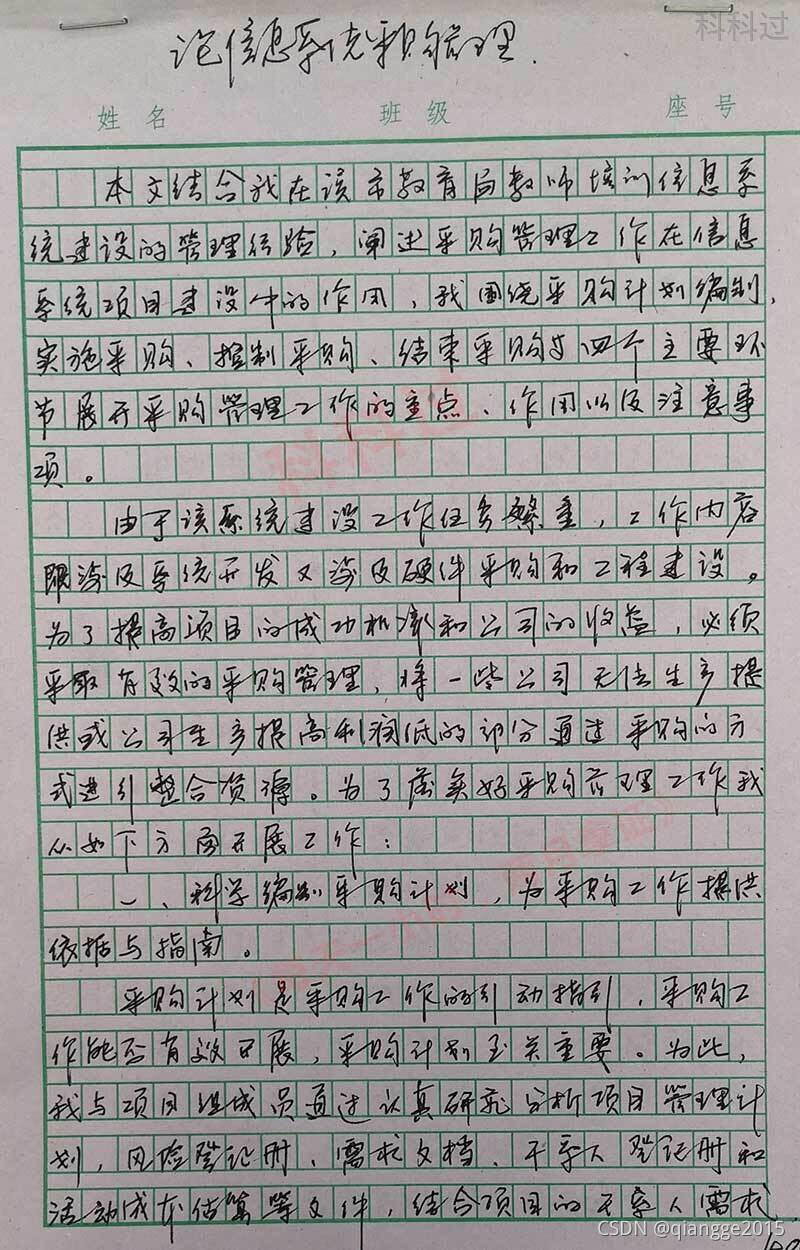 科科过
论信息系统采购管理.
姓名 班级 座号
本文结合我在该市教育局教师培训信息系
统建设的管理经验，阐述采购管理工作在信息
系统项目建设中的作用，我围绕采购计划编制，
实施采购、控制采购、结束采购与四个主要环
节展开采购管理工作的重点、作用以及注意事
项。
由于该系统建设工作任务繁重，工作内容
即涉及系统开发又涉及硬件采购和工程建设。
为了提高项目的成功机率和公司的收益，必须
采取有效的采购管理，将一些公司无法生产提
供或公司生产提高利润低的部分通过采购的方
式进引整合资源。为了落实好采购管理工作我
从如下方面开展工作：
一、科学编制采购计划，为采购工作提供
依据与指南。
采购计划是采购工作的引动指引，采购工
作能否有效开展，采购计划至关重要。为此，
我与项目组成员通过认真研究分析项目管理计
划，风险登记册、需求文档、干系人登记册和
活动成本估算等文件，结合项目的干系人需求，
CSDN @qiangge2015